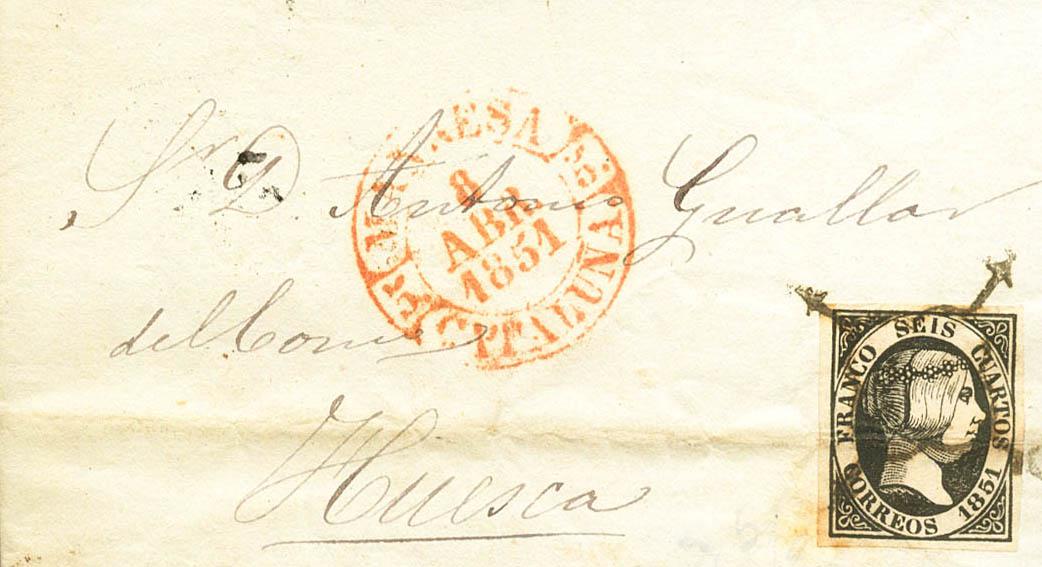 Sr. D. Antonio Guallar
del Com
Huesca
MANRESA
8
ABR
1851
CATALUÑA
FRANCO SEIS CUARTOS
CORREOS 1851